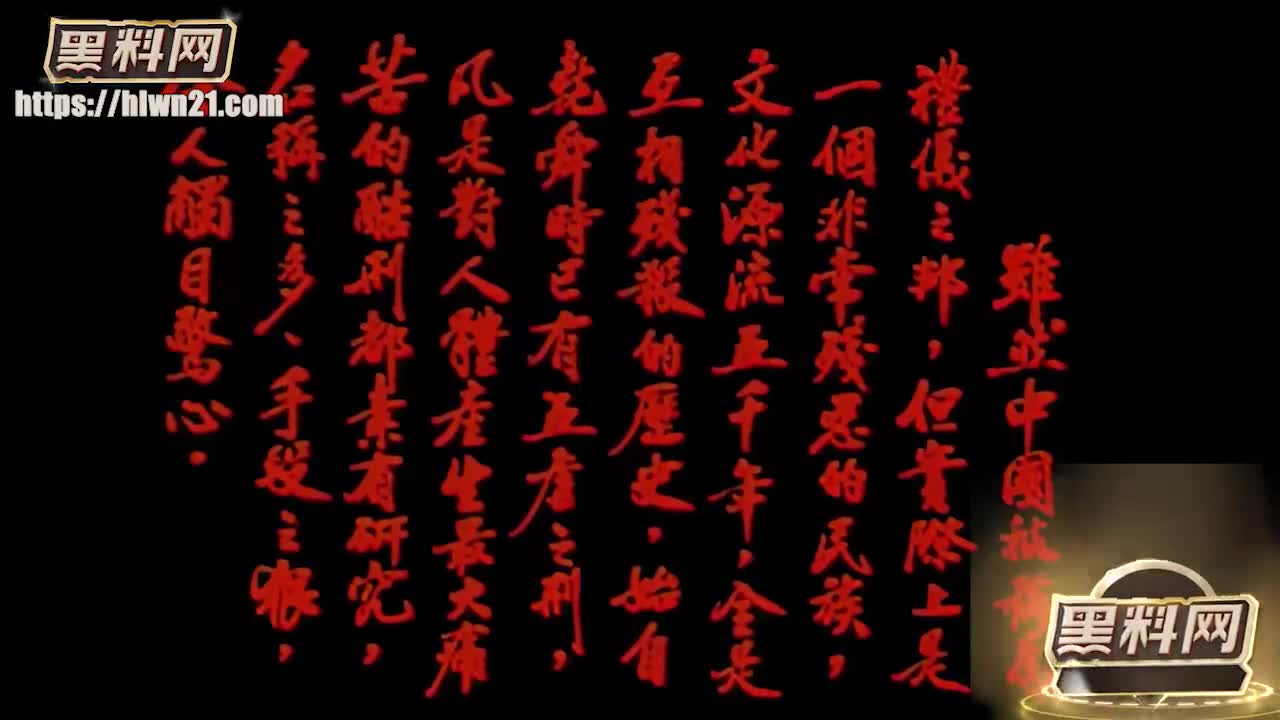 黑料网
https://hlwn21.com
雖然中國被稱為
禮儀之邦，但實際上是
一個非常殘忍的民族，
文化源流五千年，全是
互相殘殺的歷史，始自
堯舜時已有五虐之刑，
凡是對人體產生最大痛
苦的酷刑都素有研究，
名稱之多、手段之狠，
令人觸目驚心．
黑料网